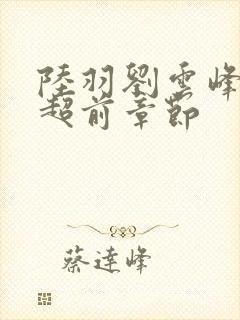 陸羽劉雲峰
超前章節
蔡達峰